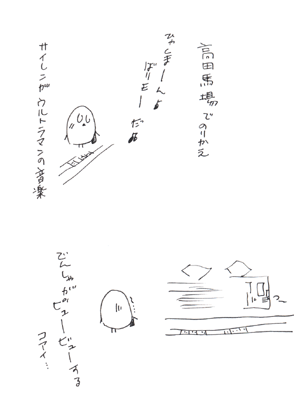 高田馬場でのりかえ
ひゃしまーんよ
ばりモーだ
サイレンがウルトラマンの音楽
でんしゃがビュービューする
コワイ…